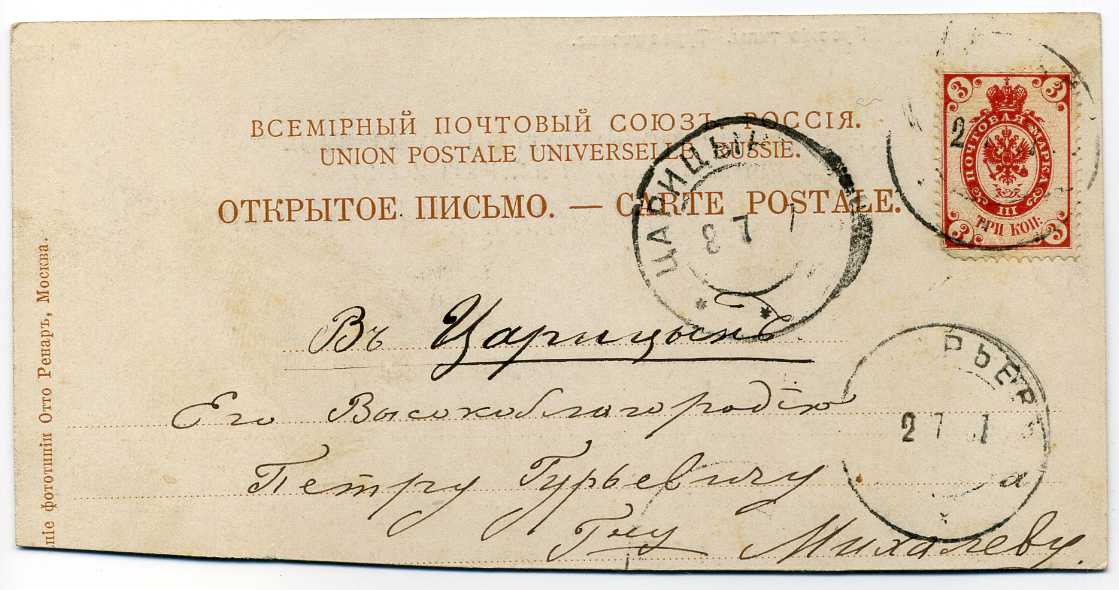 ВСЕМІРНЫЙ ПОЧТОВЫЙ СОЮЗЪ РОССІЯ.
UNION POSTALE UNIVERSELLE RUSSIE.
ОТКРЫТОЕ ПИСЬМО. — CARTE POSTALE.
3 3
ПОЧТОВАЯ МАРКА
III
ТРИ КОП.
3 3
2
ЦАРИЦЫН
8 7 1
Въ Царицынъ
Его Высокоблагородію
Петру Гурьевичу
Гну Михалеву.
РЬЕВЪ
2 7 1
а
ніе фототипіи Отто Ренаръ, Москва.